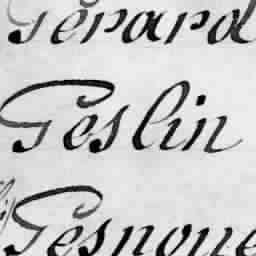 Gérard
Geslin
Gesnoue